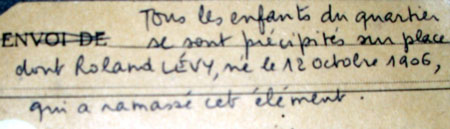 Tous les enfants du quartier
ENVOI DE se sont précipités sur place
dont Roland LÉVY, né le 12 Octobre 1906,
qui a ramassé cet élément.